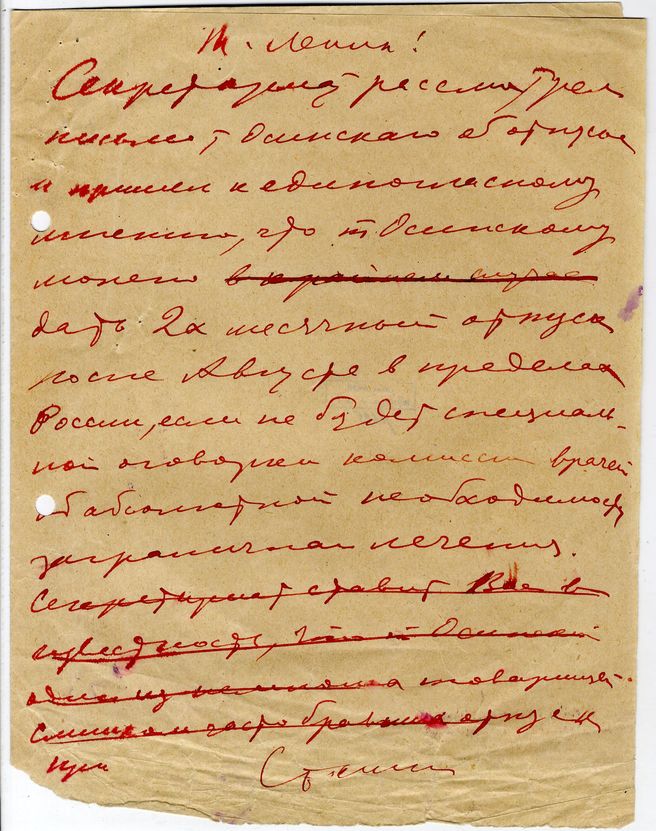 Т. Ленин!
Секретариат рассмотрел
письмо т Осинскаго об отпуске
и пришел к единогласному
мнению, что т Осинскому
можно в крайнем случае
дать 2х месячный отпуск
после Августа в пределах
России, если не будет специаль-
ной оговорки комиссии врачей
об абсолютной необходимости
заграничнаго лечения.
Секретариат ставит Вас в
известность, что т Осинский
один из немногих товарищей.
слишком часто бравших отпуск
при
Сталин